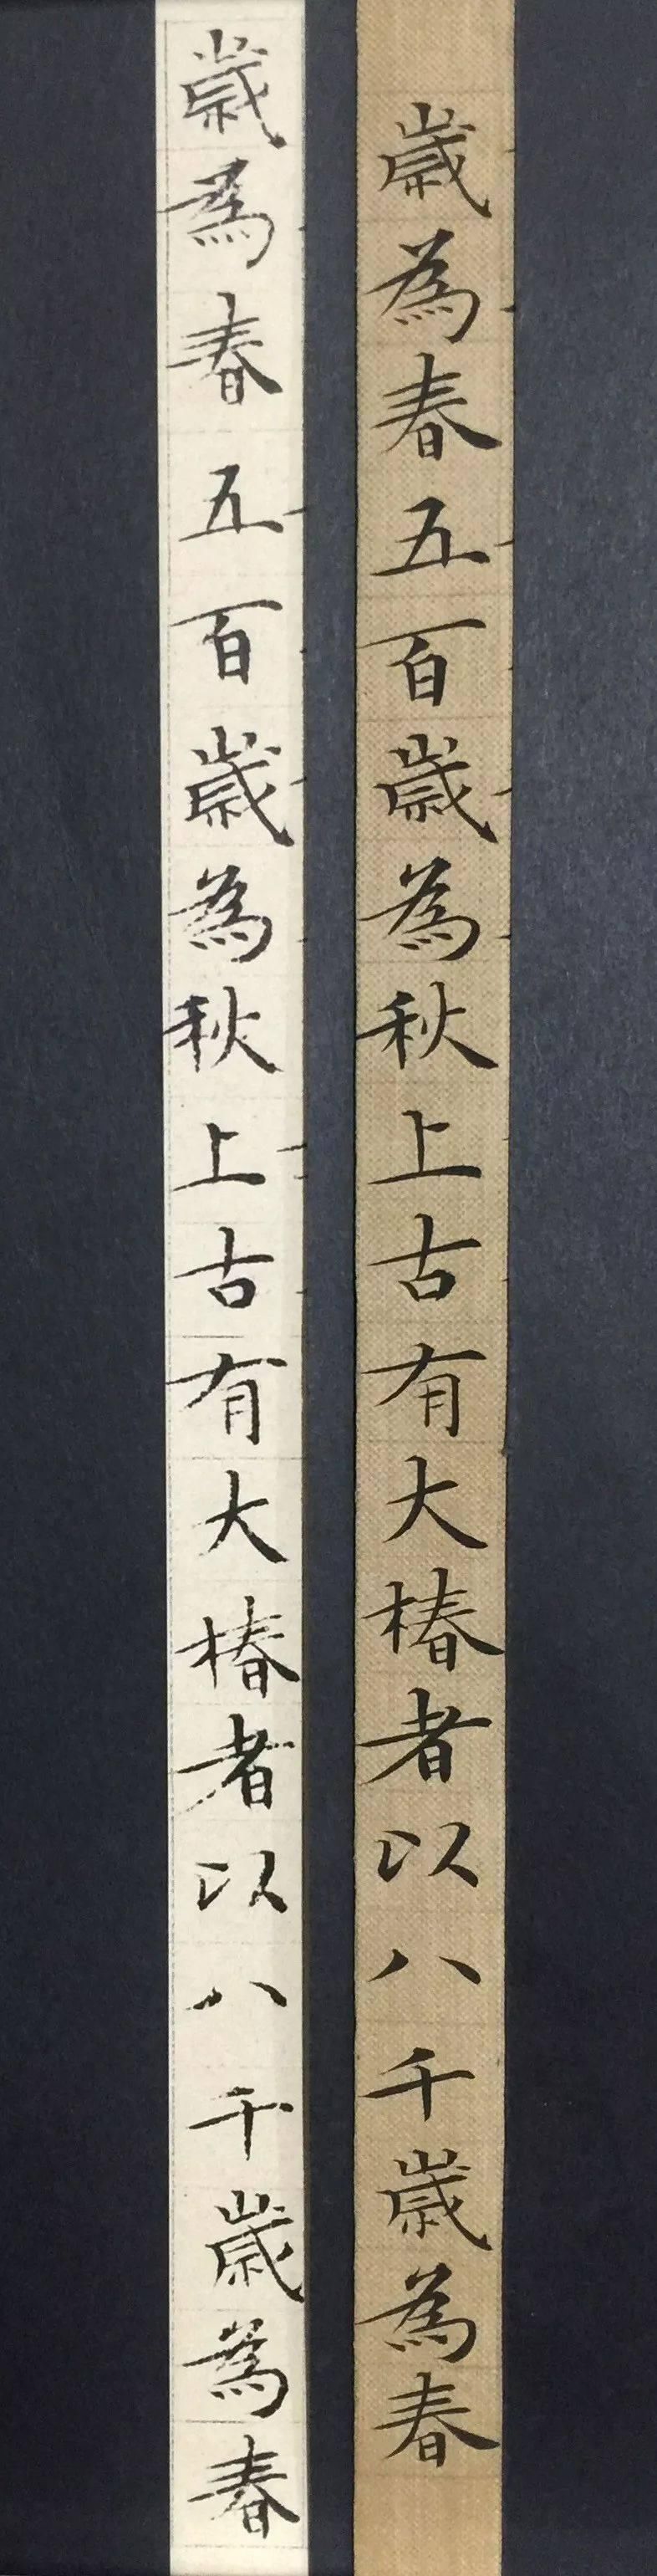 歳為春五百歳為秋上古有大椿者以八千歳為春
歳為春五百歳為秋上古有大椿者以八千歳為春